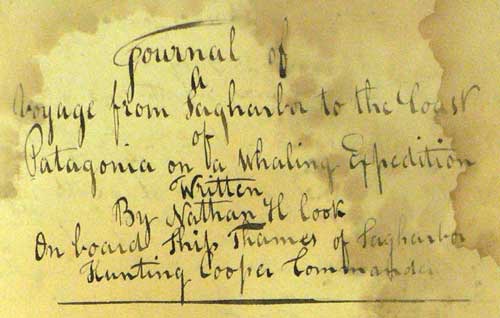 Journal of
A
Voyage from Sagharbor to the Coast
of
Patagonia on a Whaling Expedition
Written
By Nathan H Cook
On board Ship Thames of Sagharbor
Hunting Cooper Commander